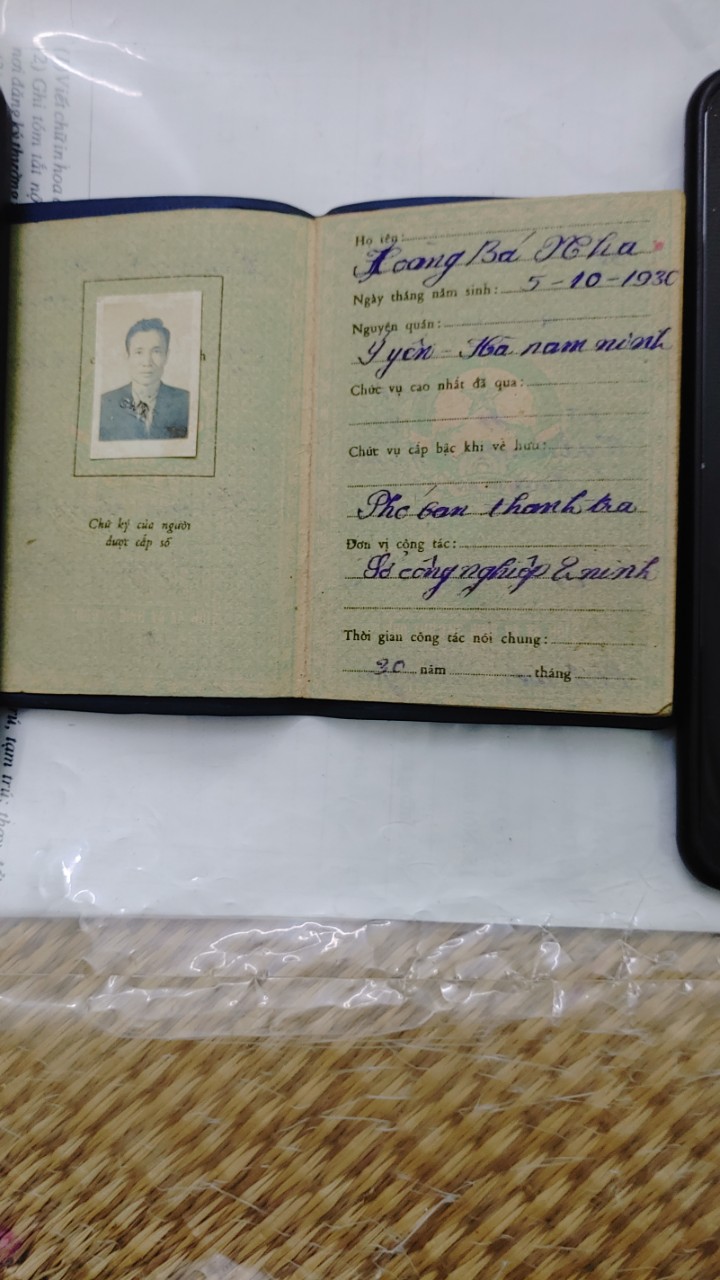 (1) Viết chữ in hoa
(2) Ghi tóm tắt nộ
nơi đăng ký thường
Chữ ký của người
được cấp sổ
Họ tên:
Hoàng Bá Nha
Ngày tháng năm sinh: 5-10-1930
Nguyên quán:
Ý yên - Hà nam ninh
Chức vụ cao nhất đã qua:
Chức vụ cấp bậc khi về hưu:
Phó ban thanh tra
Đơn vị công tác:
Sở công nghiệp Q ninh
Thời gian công tác nói chung:
30 năm tháng
tạm trú;